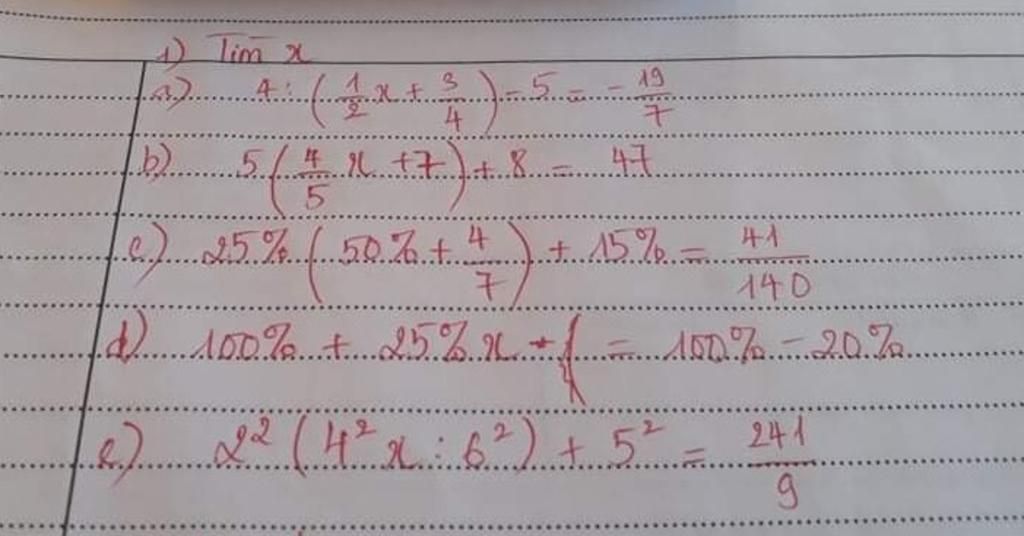 1) Tìm x
a) 4 : (1/2 x + 3/4) - 5 = - 19/7
b) 5 (4/5 x + 7) + 8 = 47
c) 25% (50% + 4/7) + 15% = 41/140
d) 100% + 25% x = 100% - 20%
e) 2² (4² x : 6²) + 5² = 241/9